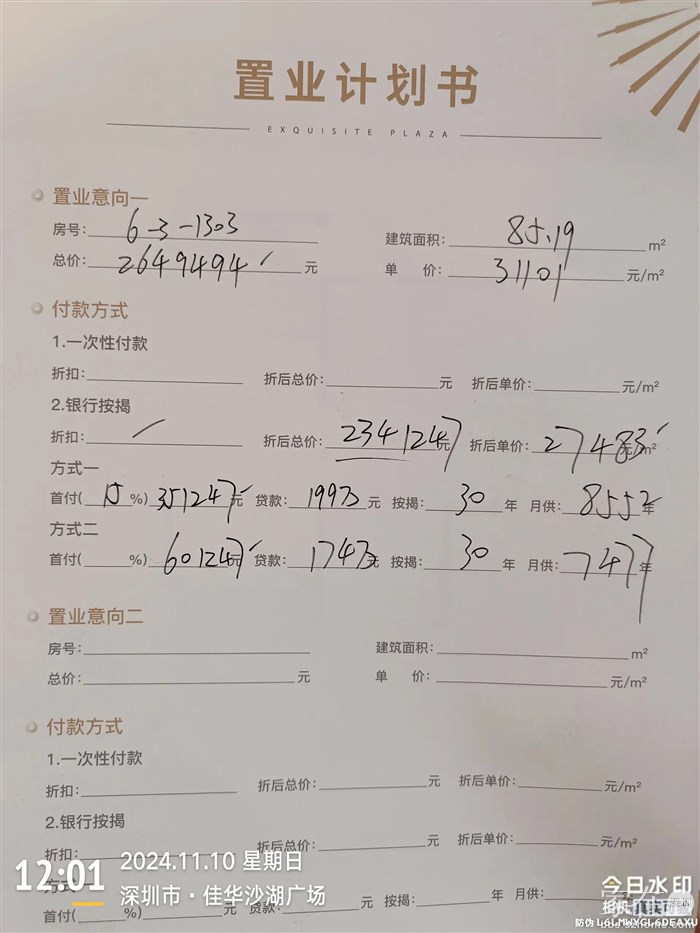 置业计划书
EXQUISITE PLAZA
置业意向一
房号: 6-3-1303 建筑面积: 85.19 m²
总价: 2649494 元 单 价: 31101 元/m²
付款方式
1.一次性付款
折扣: 折后总价: 元 折后单价: 元/m²
2.银行按揭
折扣: 折后总价: 2341247 元 折后单价: 27483 元/m²
方式一
首付( 15 %) 351247 元 贷款: 199万 元 按揭: 30 年 月供: 8552 年
方式二
首付( %) 601247 元 贷款: 174万 元 按揭: 30 年 月供: 7477 年
置业意向二
房号: 建筑面积: m²
总价: 元 单 价: 元/m²
付款方式
1.一次性付款
折扣: 折后总价: 元 折后单价: 元/m²
2.银行按揭
折扣: 折后总价: 元 折后单价: 元/m²
方式一
首付( %) 元 贷款: 元 按揭: 年 月供:
12:01 2024.11.10 星期日
深圳市·佳华沙湖广场
今日水印
防伪